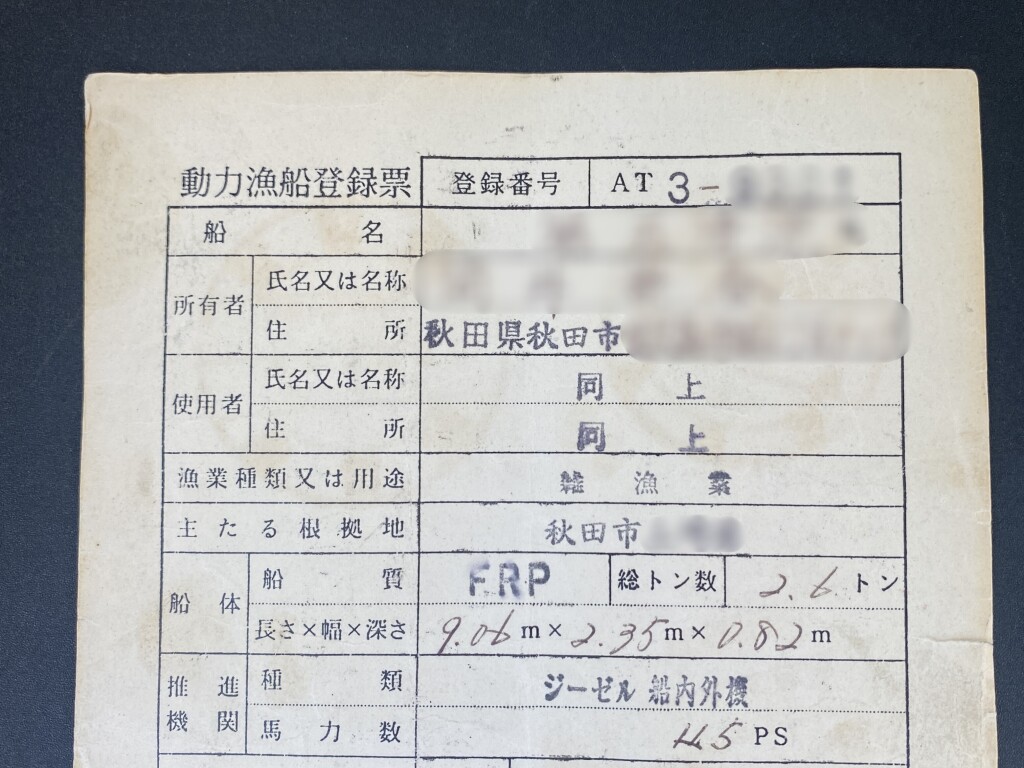 動力漁船登録票 登録番号 AT 3-
船名
所有者 氏名又は名称
住所 秋田県秋田市
使用者 氏名又は名称 同上
住所 同上
漁業種類又は用途 雑漁業
主たる根拠地 秋田市
船体 船質 FRP 総トン数 2.6トン
長さ×幅×深さ 9.06m×2.35m×0.82m
推進機関 種類 ジーゼル 船内外機
馬力数 45 PS